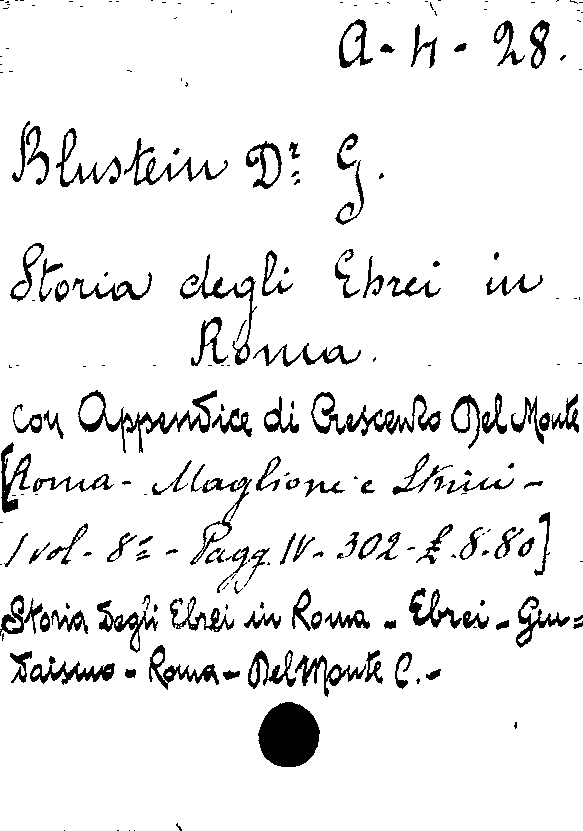 A-4-28.
Blustein Dr. G.
Storia degli Ebrei in
Roma.
con Appendice di Crescenzo Del Monte
[Roma - Maglione e Strini -
1 vol. 8º - Pagg. IV - 302 - £. 8.80]
Storia degli Ebrei in Roma - Ebrei - Giu=
daismo - Roma - Del Monte C. -